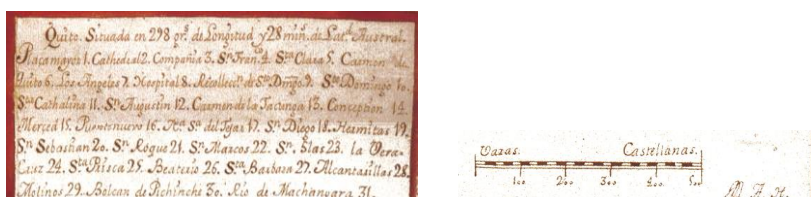 Quito. Situada en 298 grs. de Longitud y 28 mins. de Latd. Austral.
Placamayor 1. Cathedral 2. Compañia 3. Sn. Frano. 4. Sta. Clara 5. Carmen de
Quito 6. Los Angeles 7. Hospital 8. Recollecn. de Sto. Dmgo. 9. Sto. Domingo 10.
Sta. Cathalina 11. Sn. Augustin 12. Carmen de la Tacunga 13. Conception 14.
Merced 15. Puentenuevo 16. Na. Sa. del Tejar 17. Sn. Diego 18. Hermitas 19.
Sn. Sebastian 20. Sn. Roque 21. Sn. Marcos 22. Sn. Blas 23. la Vera-
Cruz 24. Sta. Prisca 25. Beaterio 26. Sta. Barbara 27. Alcantarillas 28.
Molinos 29. Bolcan de Pichinche 30. Rio de Machangara 31.
Varas. Castellanas.
100 200 300 400 500